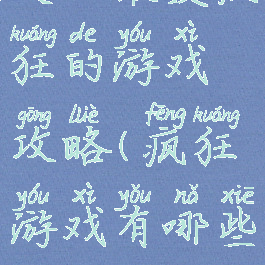 kuáng de yóu xì
狂的游戏
gōng lüè fēng kuáng
攻略(疯狂
yóu xì yǒu nǎ xiē
游戏有哪些